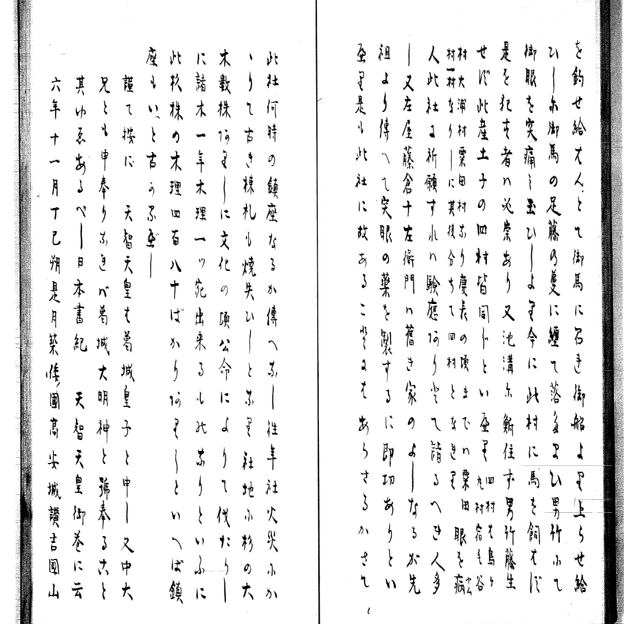 を釣せ給はんとて御馬にめさせ御船より上らせ給
ひしに御馬の足藤の蔓に纏て落ち玉ひ男竹にて
御眼を突痛ミ玉ひしより今に此村に馬を飼はず
是を犯す者ハ必崇あり又池溝に鮒住ず男竹藤生
せず此産土子の四村皆同しといへり
村大浦村粟田村
村一村なりしに
人此社に祈願すれハ験應ありとて詣るへき人多
し又左屋藤倉十左衛門ハ舊き家のよしなるが先
祖より傳へて突眼の薬を製するに即功ありとい
へり是も此社に故あることにもあらさるかさて
此社何時の鎮座なるか傳へなし往年社火災にか
ゝりて古き棟札も焼失ひしとなり社地に杉の大
木数株ありしに文化の頃公命によりて伐たりし
に諸木一年木理一ツ宛出来るものなりといふに
此杉株の木理四百八十ばかりありしといへば鎮
座もいと古かるべし
謹て按に 天智天皇を葛城皇子と申し又中大
兄とも申奉りなれバ葛城大明神と號奉ること
其ゆゑあるべし日本書紀 天智天皇御巻に云
六年十一月丁巳朔是月築倭國高安城讃吉國山